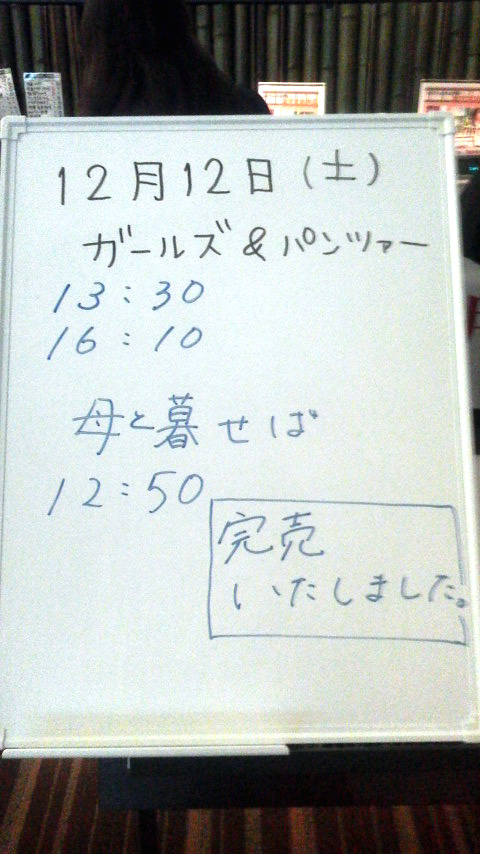 12月12日(土)
ガールズ&パンツァー
13:30
16:10
母と暮せば
12:50
完売
いたしました。